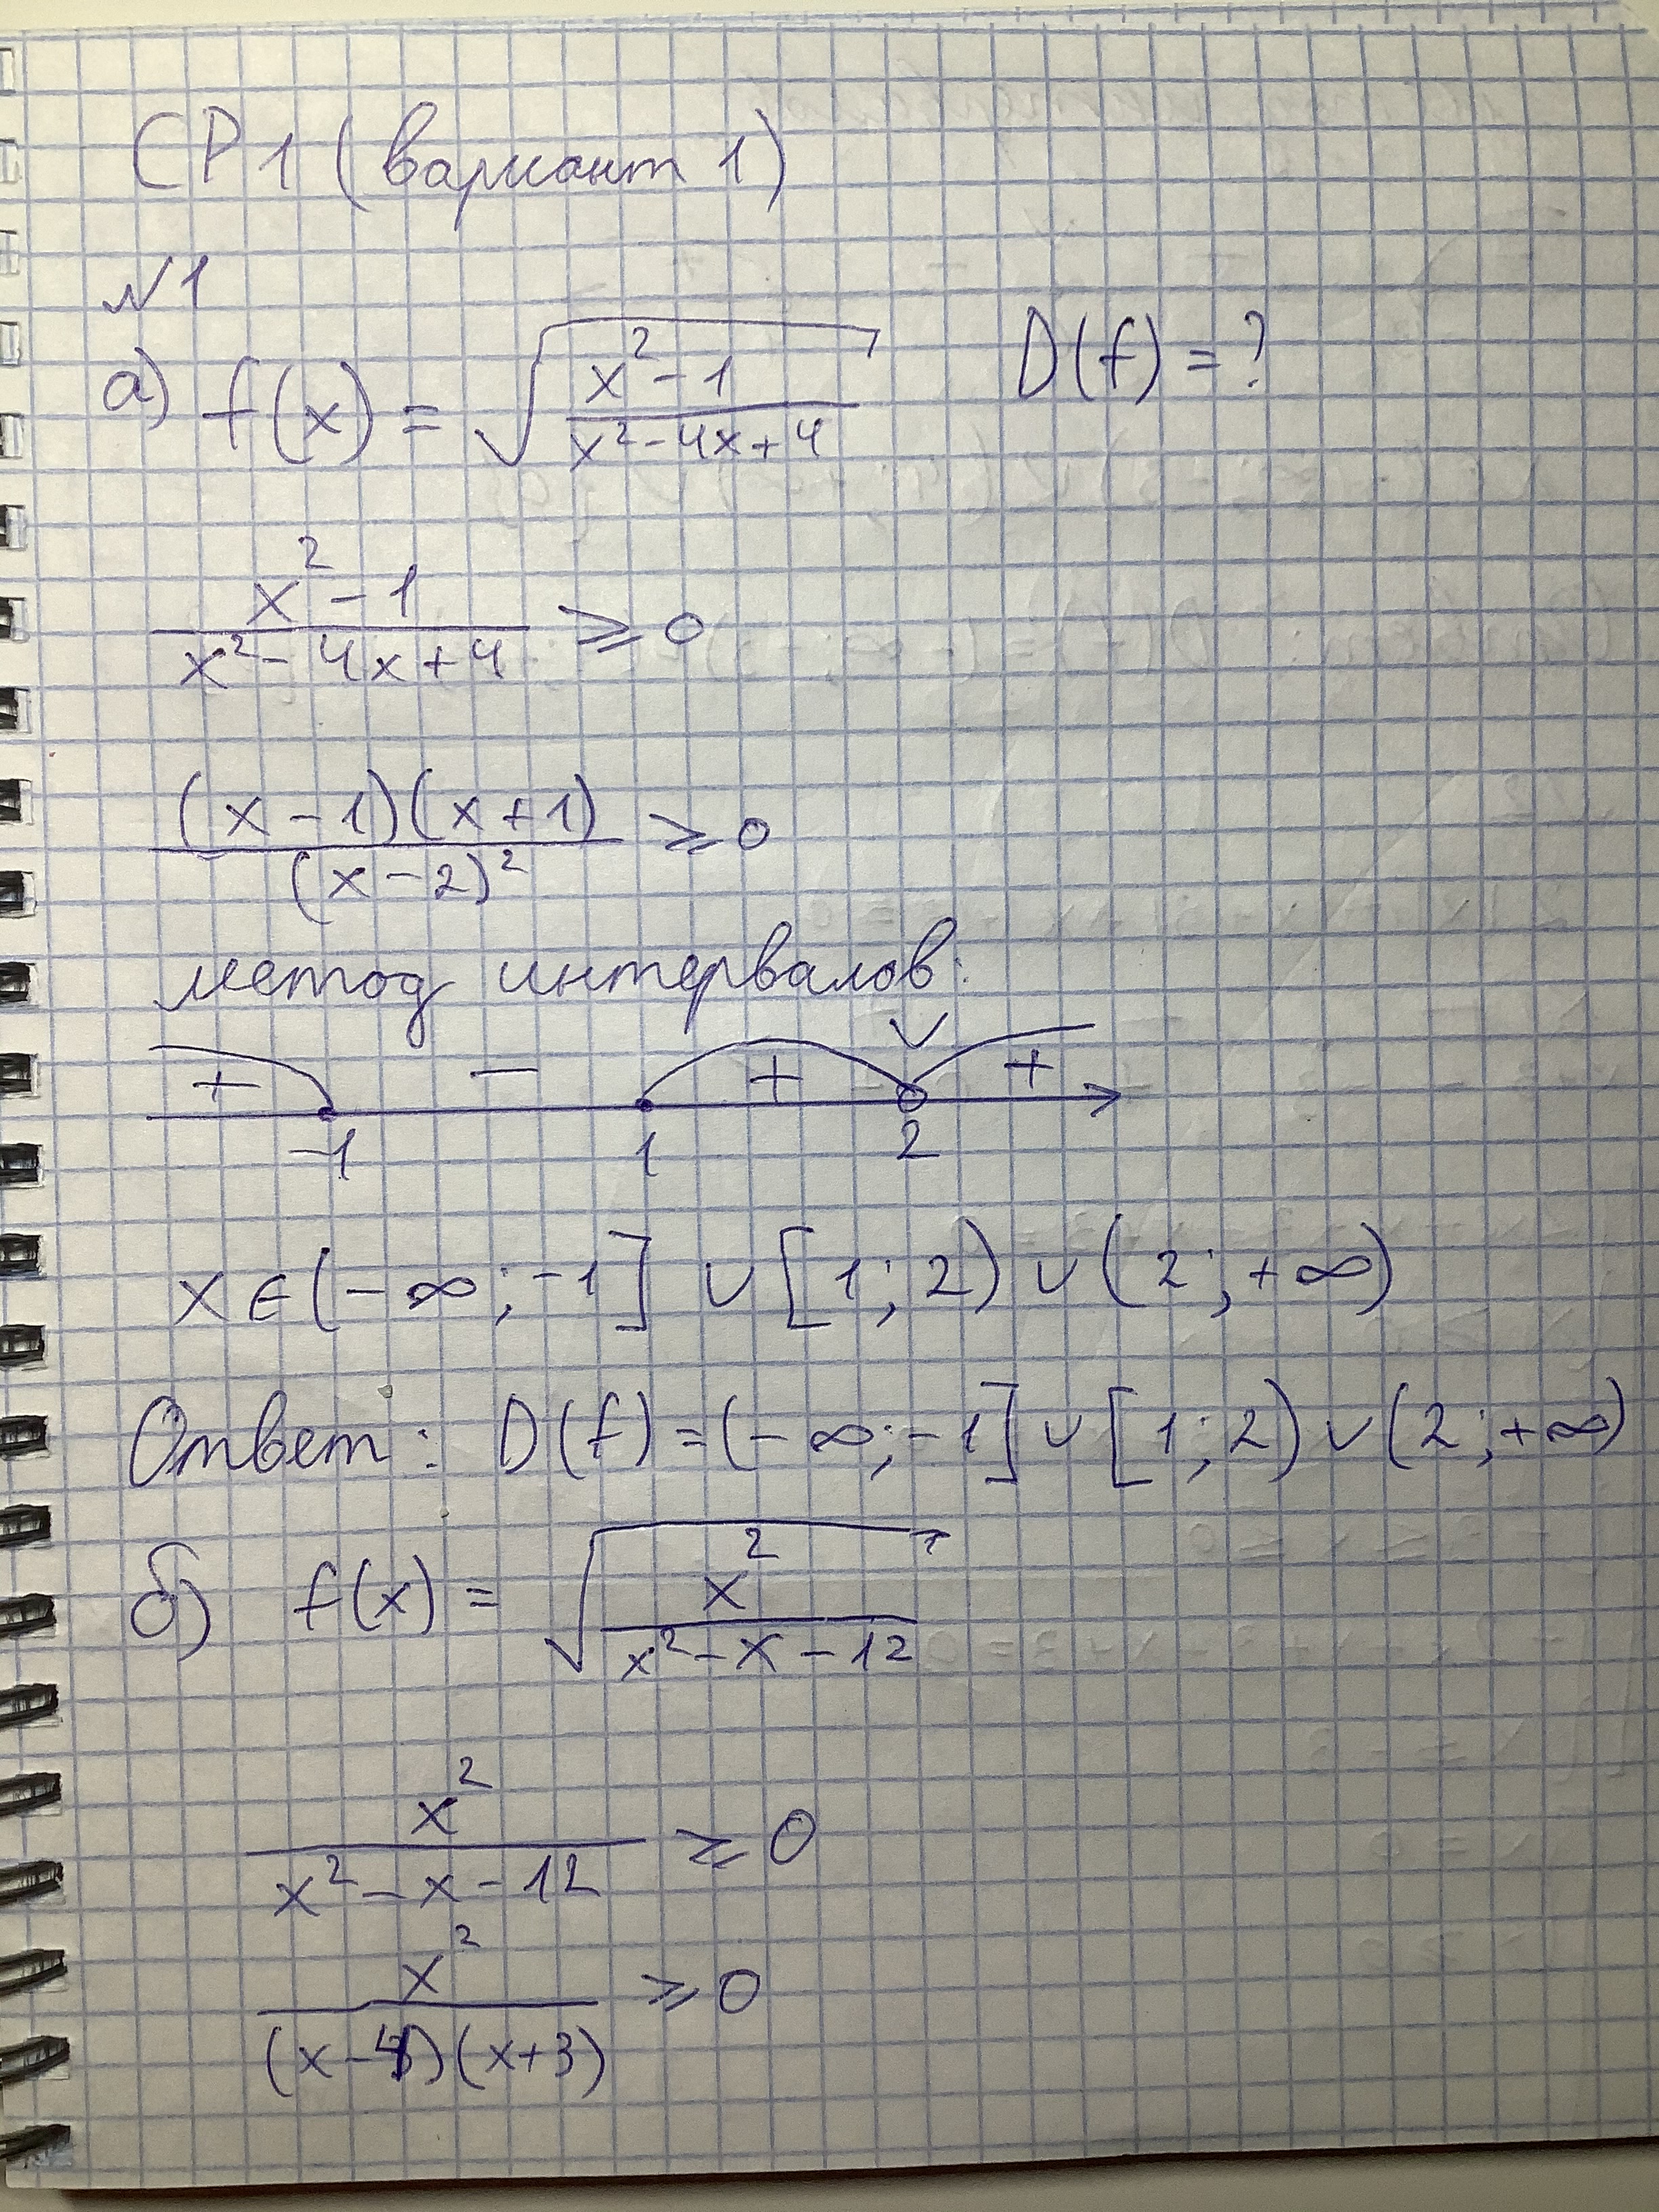 СР1 (вариант 1)
№1
а) f(x) = √((x² - 1)/(x² - 4x + 4)) D(f) = ?
(x² - 1)/(x² - 4x + 4) ⩾ 0
((x - 1)(x + 1))/((x - 2)²) ⩾ 0
метод интервалов:
+ - + + 
-1 1 2
x ∈ (-∞; -1] ∪ [1; 2) ∪ (2; +∞)
Ответ: D(f) = (-∞; -1] ∪ [1; 2) ∪ (2; +∞)
б) f(x) = √(x²/(x² - x - 12))
x²/(x² - x - 12) ⩾ 0
x²/((x - 4)(x + 3)) ⩾ 0